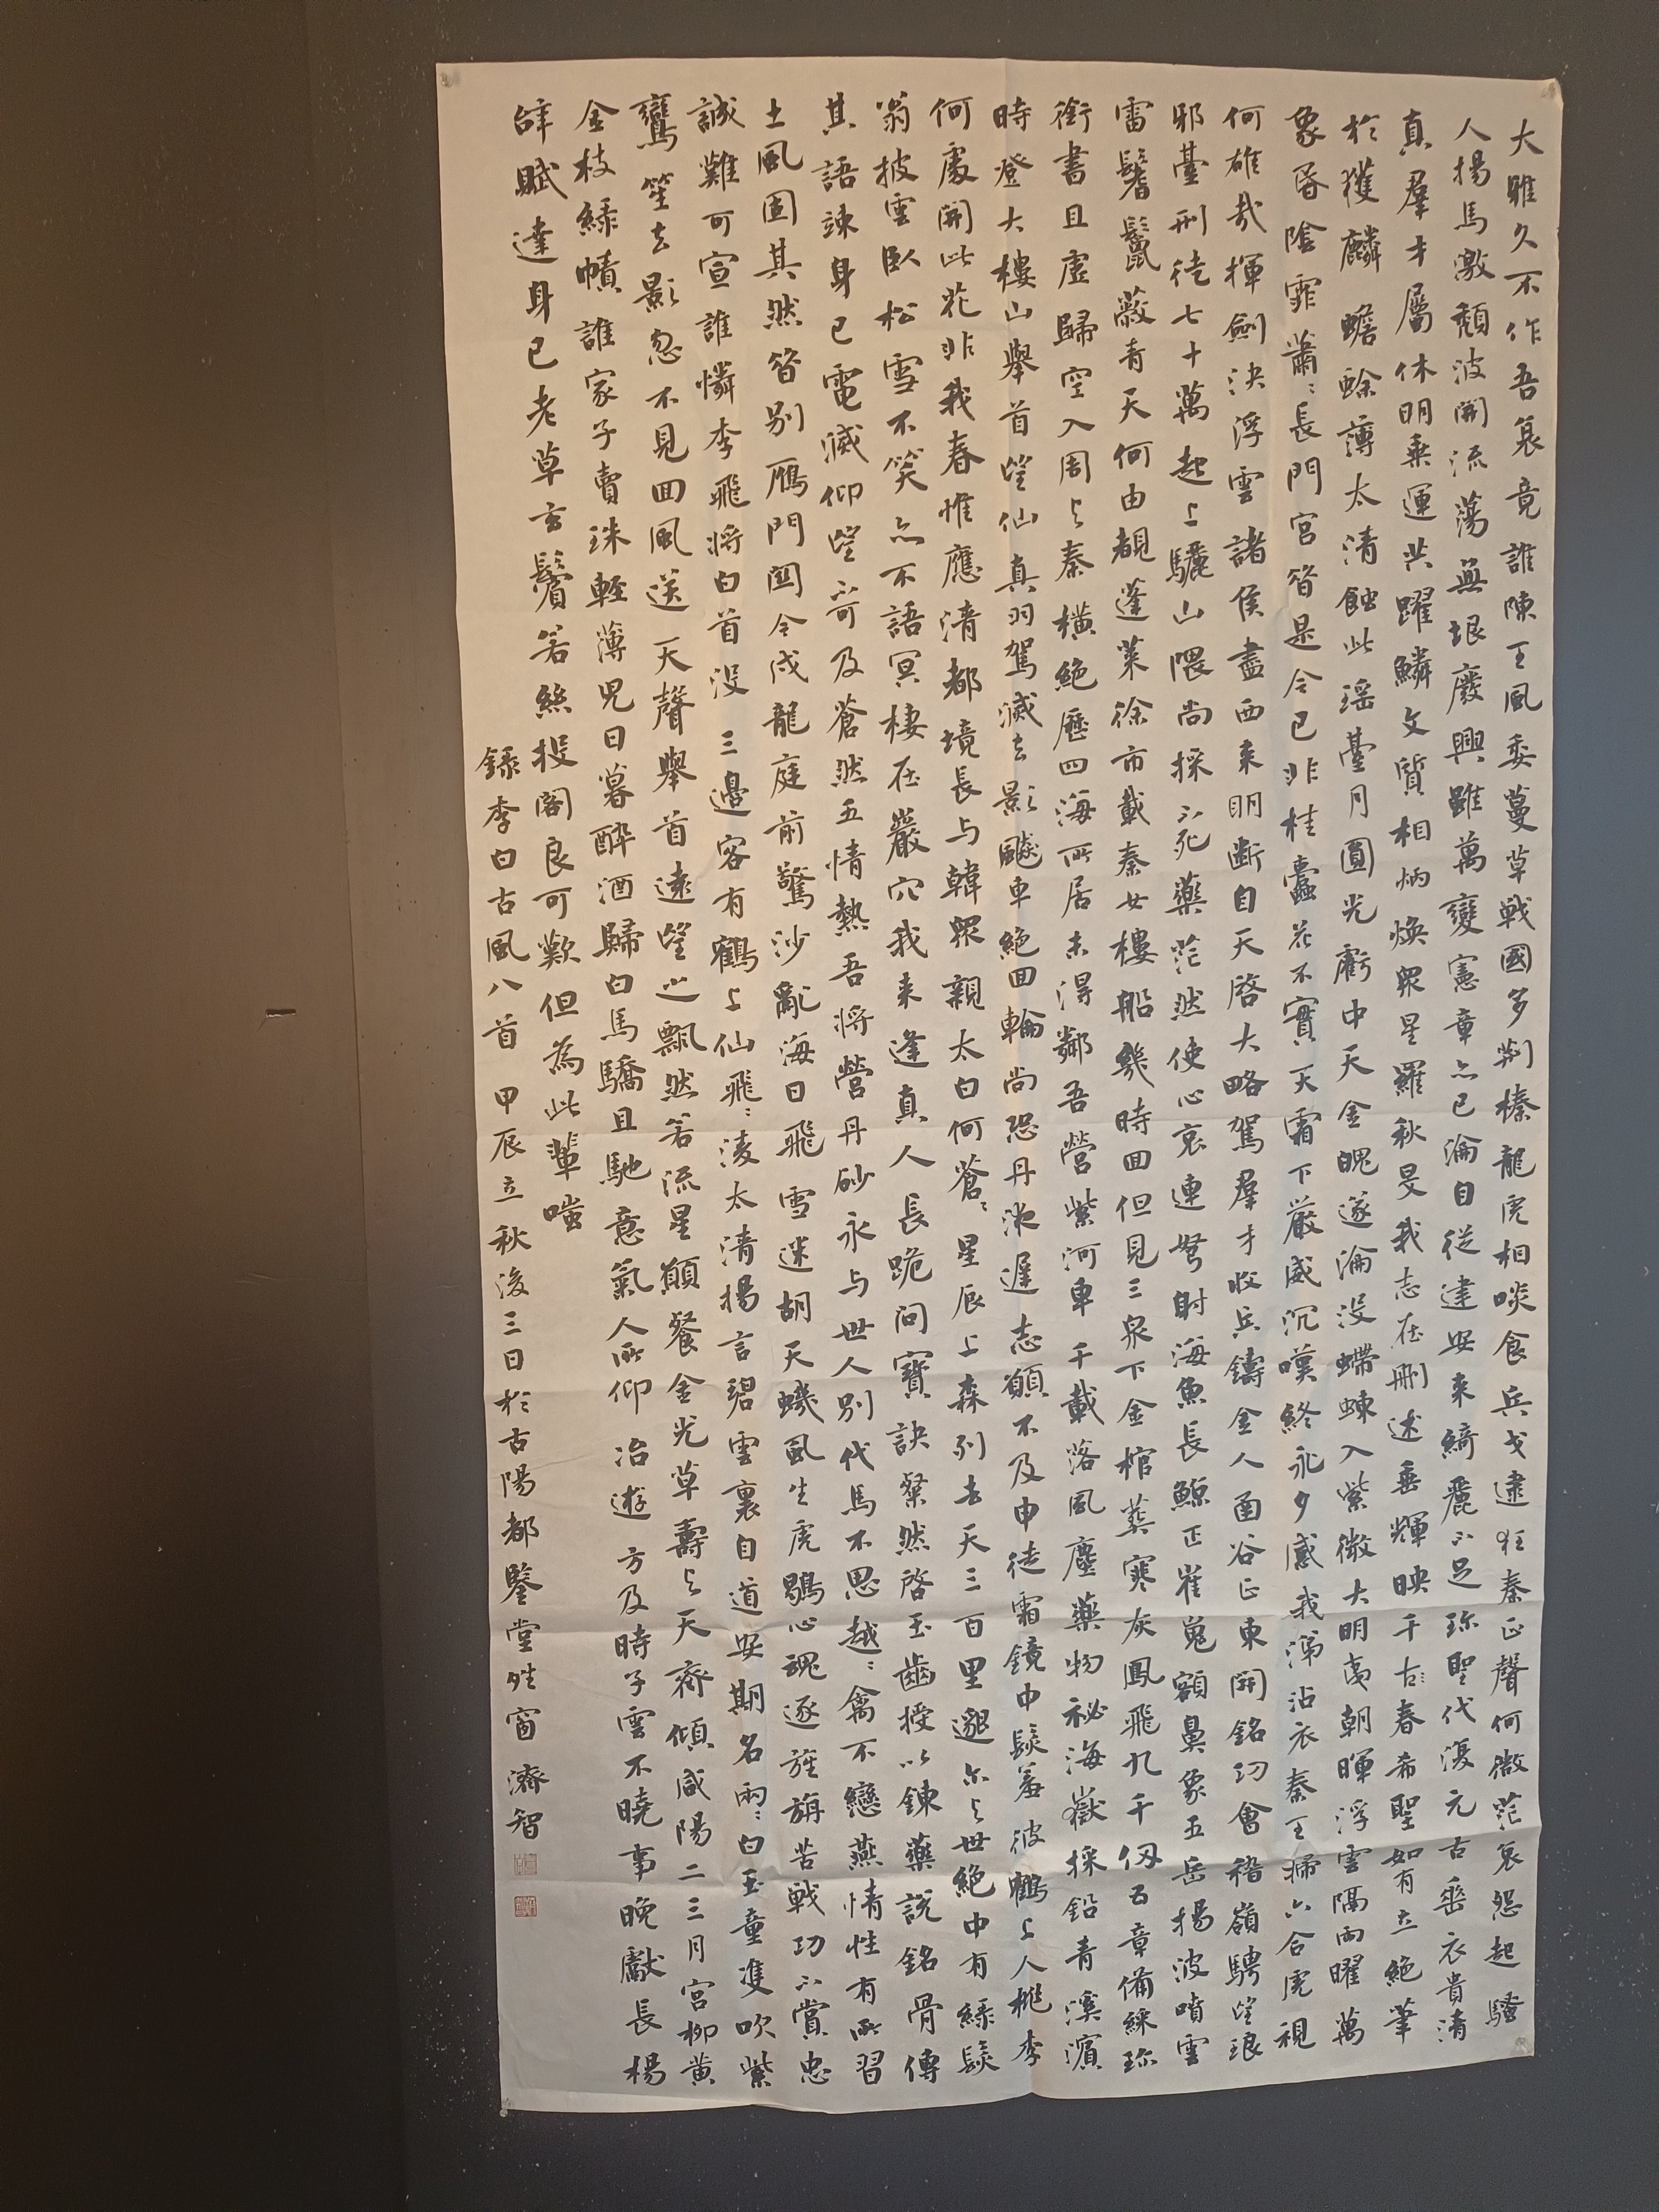 大雅久不作吾衰竟誰陳王風委蔓草戰國多荆榛龍虎相啖食兵戈逮狂秦正聲何微茫哀怨起騷
人揚馬激頹波開流蕩無垠廢興雖萬變憲章亦已淪自從建安來綺麗不足珍聖代復元古垂衣貴清
真羣才屬休明乘運共躍鱗文質相炳煥眾星羅秋旻我志在刪述垂輝映千古春希聖如有立絕筆
於獲麟蟾蜍薄太清蝕此瑤臺月圓光虧中天金魄遂淪没螮蝀入紫微大明夷朝暉浮雲隔兩曜萬
象昏陰霏蕭〻長門宮昔是今已非桂蠹花不實天霜下嚴威沉嘆終永夕感我涕沾衣秦王掃六合虎視
何雄哉揮劍決浮雲諸侯盡西來明斷自天啓大略駕羣才收兵鑄金人函谷正東開銘功會稽嶺騁望琅
邪臺刑徒七十萬起土驪山隈尚採不死藥茫然使心哀連弩射海魚長鯨正崔嵬額鼻象五岳揚波噴雲
雷鬐鬣蔽青天何由覩蓬萊徐市載秦女樓船幾時回但見三泉下金棺葬寒灰鳳飛九千仭五章備綵珍
銜書且虛歸空入周与秦横絕歷四海所居未得鄰吾營紫河車千載落風塵藥物祕海嶽採鉛青溪濱
時登大樓山舉首望仙真羽駕滅去影飇車絕回輪尚恐丹液遲志願不及申徒霜鏡中髮羞彼鶴上人桃李
何處開此花非我春惟應清都境長与韓眾親太白何蒼〻星辰上森列去天三百里邈尔与世絕中有綠髮
翁披雲臥松雪不笑亦不語冥棲在巖穴我來逢真人長跪問寶訣粲然啓玉齒授以鍊藥說銘骨傳
其語竦身已電滅仰望不可及蒼然五情熱吾將營丹砂永与世人別代馬不思越〻禽不戀燕情性有所習
土風固其然昔別雁門関今戍龍庭前驚沙亂海日飛雪迷胡天蟣風生虎鶡心魂逐旌旃苦戰功不賞忠
誠難可宣誰憐李飛將白首没三邊客有鶴上仙飛〻淩太清揚言碧雲裏自道安期名兩〻白玉童雙吹紫
鸞笙去影忽不見回風送天聲舉首遠望之飄然若流星願餐金光草壽与天齊傾咸陽二三月宮柳黄
金枝綠幘誰家子賣珠輕薄兒日暮醉酒歸白馬驕且馳意氣人所仰冶遊方及時子雲不曉事晚獻長楊
辭賦達身已老草玄鬢若絲投閣良可歎但為此輩嗤
録李白古風八首甲辰立秋後三日於古陽都鑒堂窗濟智